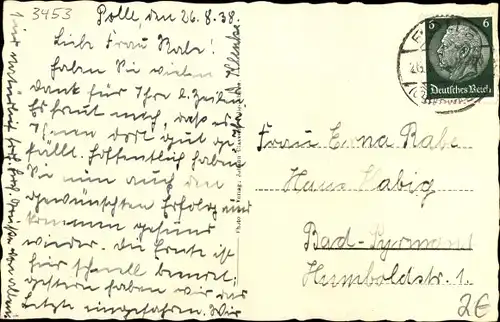 3453
Polle, den 26.8.38.
Liebe Frau Rabe!
Haben Sie vielen
Dank für Ihre l. Zeilen
Es freut mich, daß es
Ihnen dort gut ge-
fällt. Hoffentlich haben
Sie nun auch den
gewünschten Erfolg und
kommen gesund
wieder. Die Ernte ist
hier schnell beendet,
gestern haben wir das
Letzte eingefahren. Wir
6
6
Deutsches Reich
Frau Erna Rabe
Haus Habig
Bad-Pyrmont
Humboldstr. 1.
2€